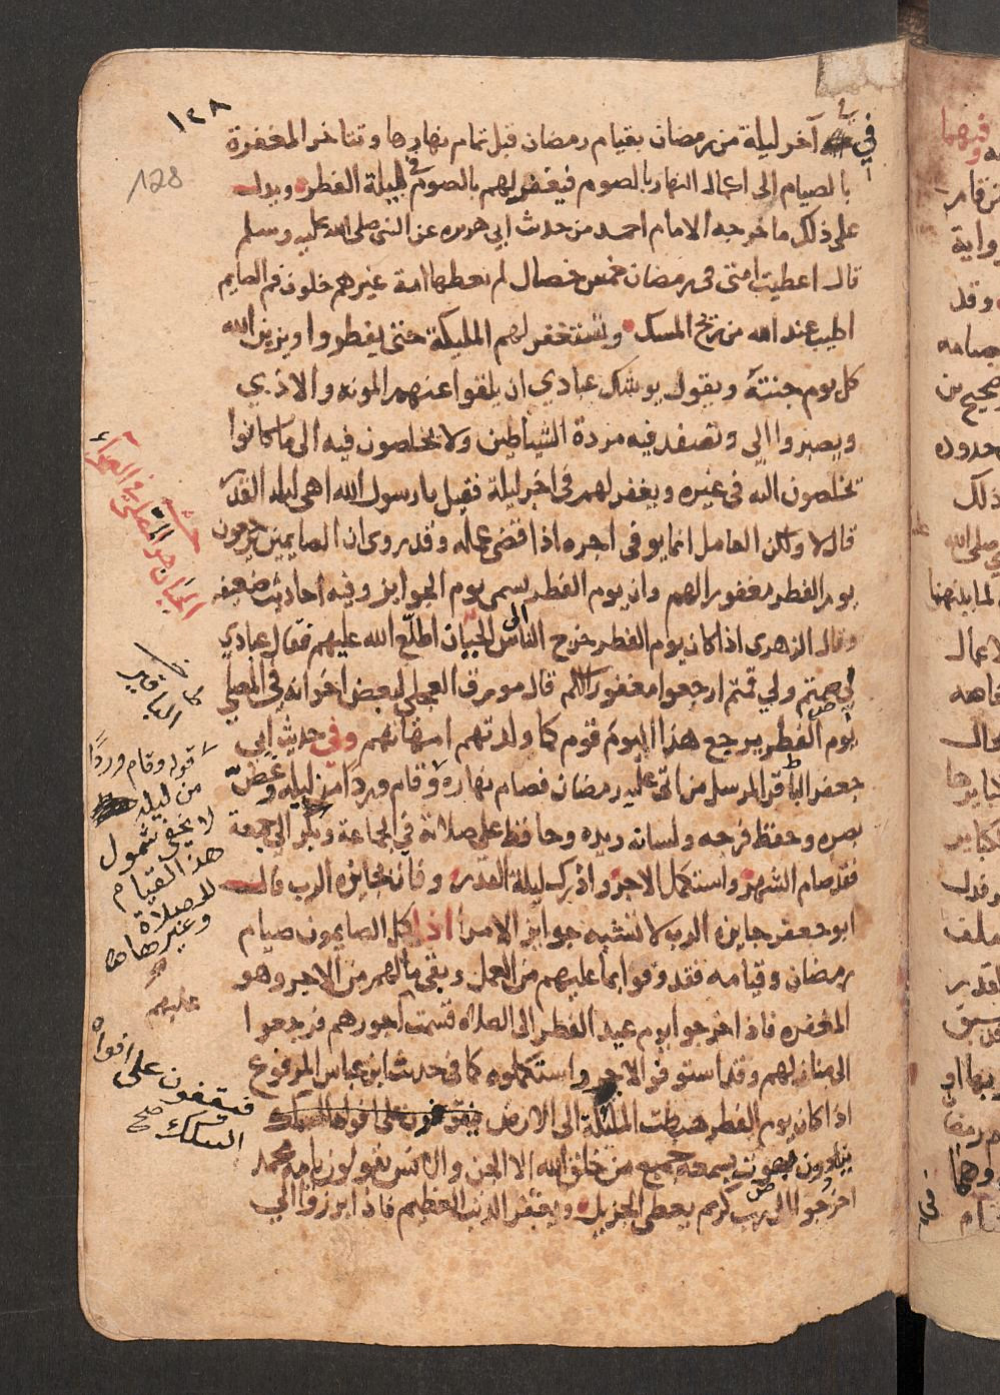 ١٢٨
128
في آخر ليلة من رمضان بقيام رمضان قبل تمام نهارها وتتاخر المغفرة
بالصيام الى اكمال النهار بالصوم فيغفر لهم بالصوم في ليلة الفطر ويدل
على ذلك ما خرجه الامام احمد من حديث ابي هريره عن النبي صلى الله عليه وسلم
قال اعطيت امتي في رمضان خمس خصال لم تعطها امة غيرهم خلوف فم الصايم
اطيب عند الله من ريح المسك وتستغفر لهم المليكة حتى يفطروا ويزين الله
كل يوم جنته ويقول يوشك عبادي ان يلقوا عنهم المونه والاذي
ويصيروا الي وتصفد فيه مردة الشياطين ولا يخلصون فيه الى ما كانوا
يخلصون اليه في غيره ويغفر لهم في اخر ليلة فقيل يا رسول الله اهي ليلة القدر
قال لا ولكن العامل انما يوفى اجره اذا قضى عمله وقد روي ان الصايمين يرجعون
يوم الفطر مغفورا لهم وان يوم الفطر يسمى يوم الجوايز وفيه احاديث ضعيفه
وقال الزهرى اذا كان يوم الفطر خرج الناس الى الجبان اطلع الله عليهم فقال عبادي
لي صمتم ولي قمتم ارجعوا مغفورا لكم قال مورق العجلي لبعض اخوانه في المصلي
يوم الفطر يرجع هذا اليوم قوم كما ولدتهم امهاتهم وفي حديث ابي
جعفر الباقر المرسل من اتى عليه رمضان فصام نهاره وقام وردا من ليله وغض
بصره وحفظ فرجه ولسانه ويده وحافظ على صلاته في الجماعة وبكر الى جمعة
فقد صام الشهر واستكمل الاجر وادرك ليلة القدر وفاز بجايزة الرب قال
ابو جعفر جايزه الرب لا تشبه جوايز الامرا اذا كمل الصايمون صيام
رمضان وقيامه فقد وفوا بما عليهم من العمل وبقي ما لهم من الاجر وهو
المغفره فاذا خرجوا يوم عيد الفطر الى الصلاه قسمت اجورهم فرجعوا
الى منازلهم وقد استوفوا الاجر واستكملوه كما في حديث ابن عباس المرفوع
اذا كان يوم الفطر هبطت المليكة الى الارض فيقفون على افواه السكك
ينادون بصوت يسمعه جميع من خلق الله الا الجن والانس يقولون يا امة محمد
اخرجوا الى رب كريم يعطي الجزيل ويغفر الذنب العظيم فاذا برزوا الي
الجبان هو المصلى في الصحراء
الباقر
قوله وقام وردا
من ليله
لا يخفى شمول
هذا القيام
للصلاة
وغيرها
عليهم
فيقفون على افواه
السكك صح